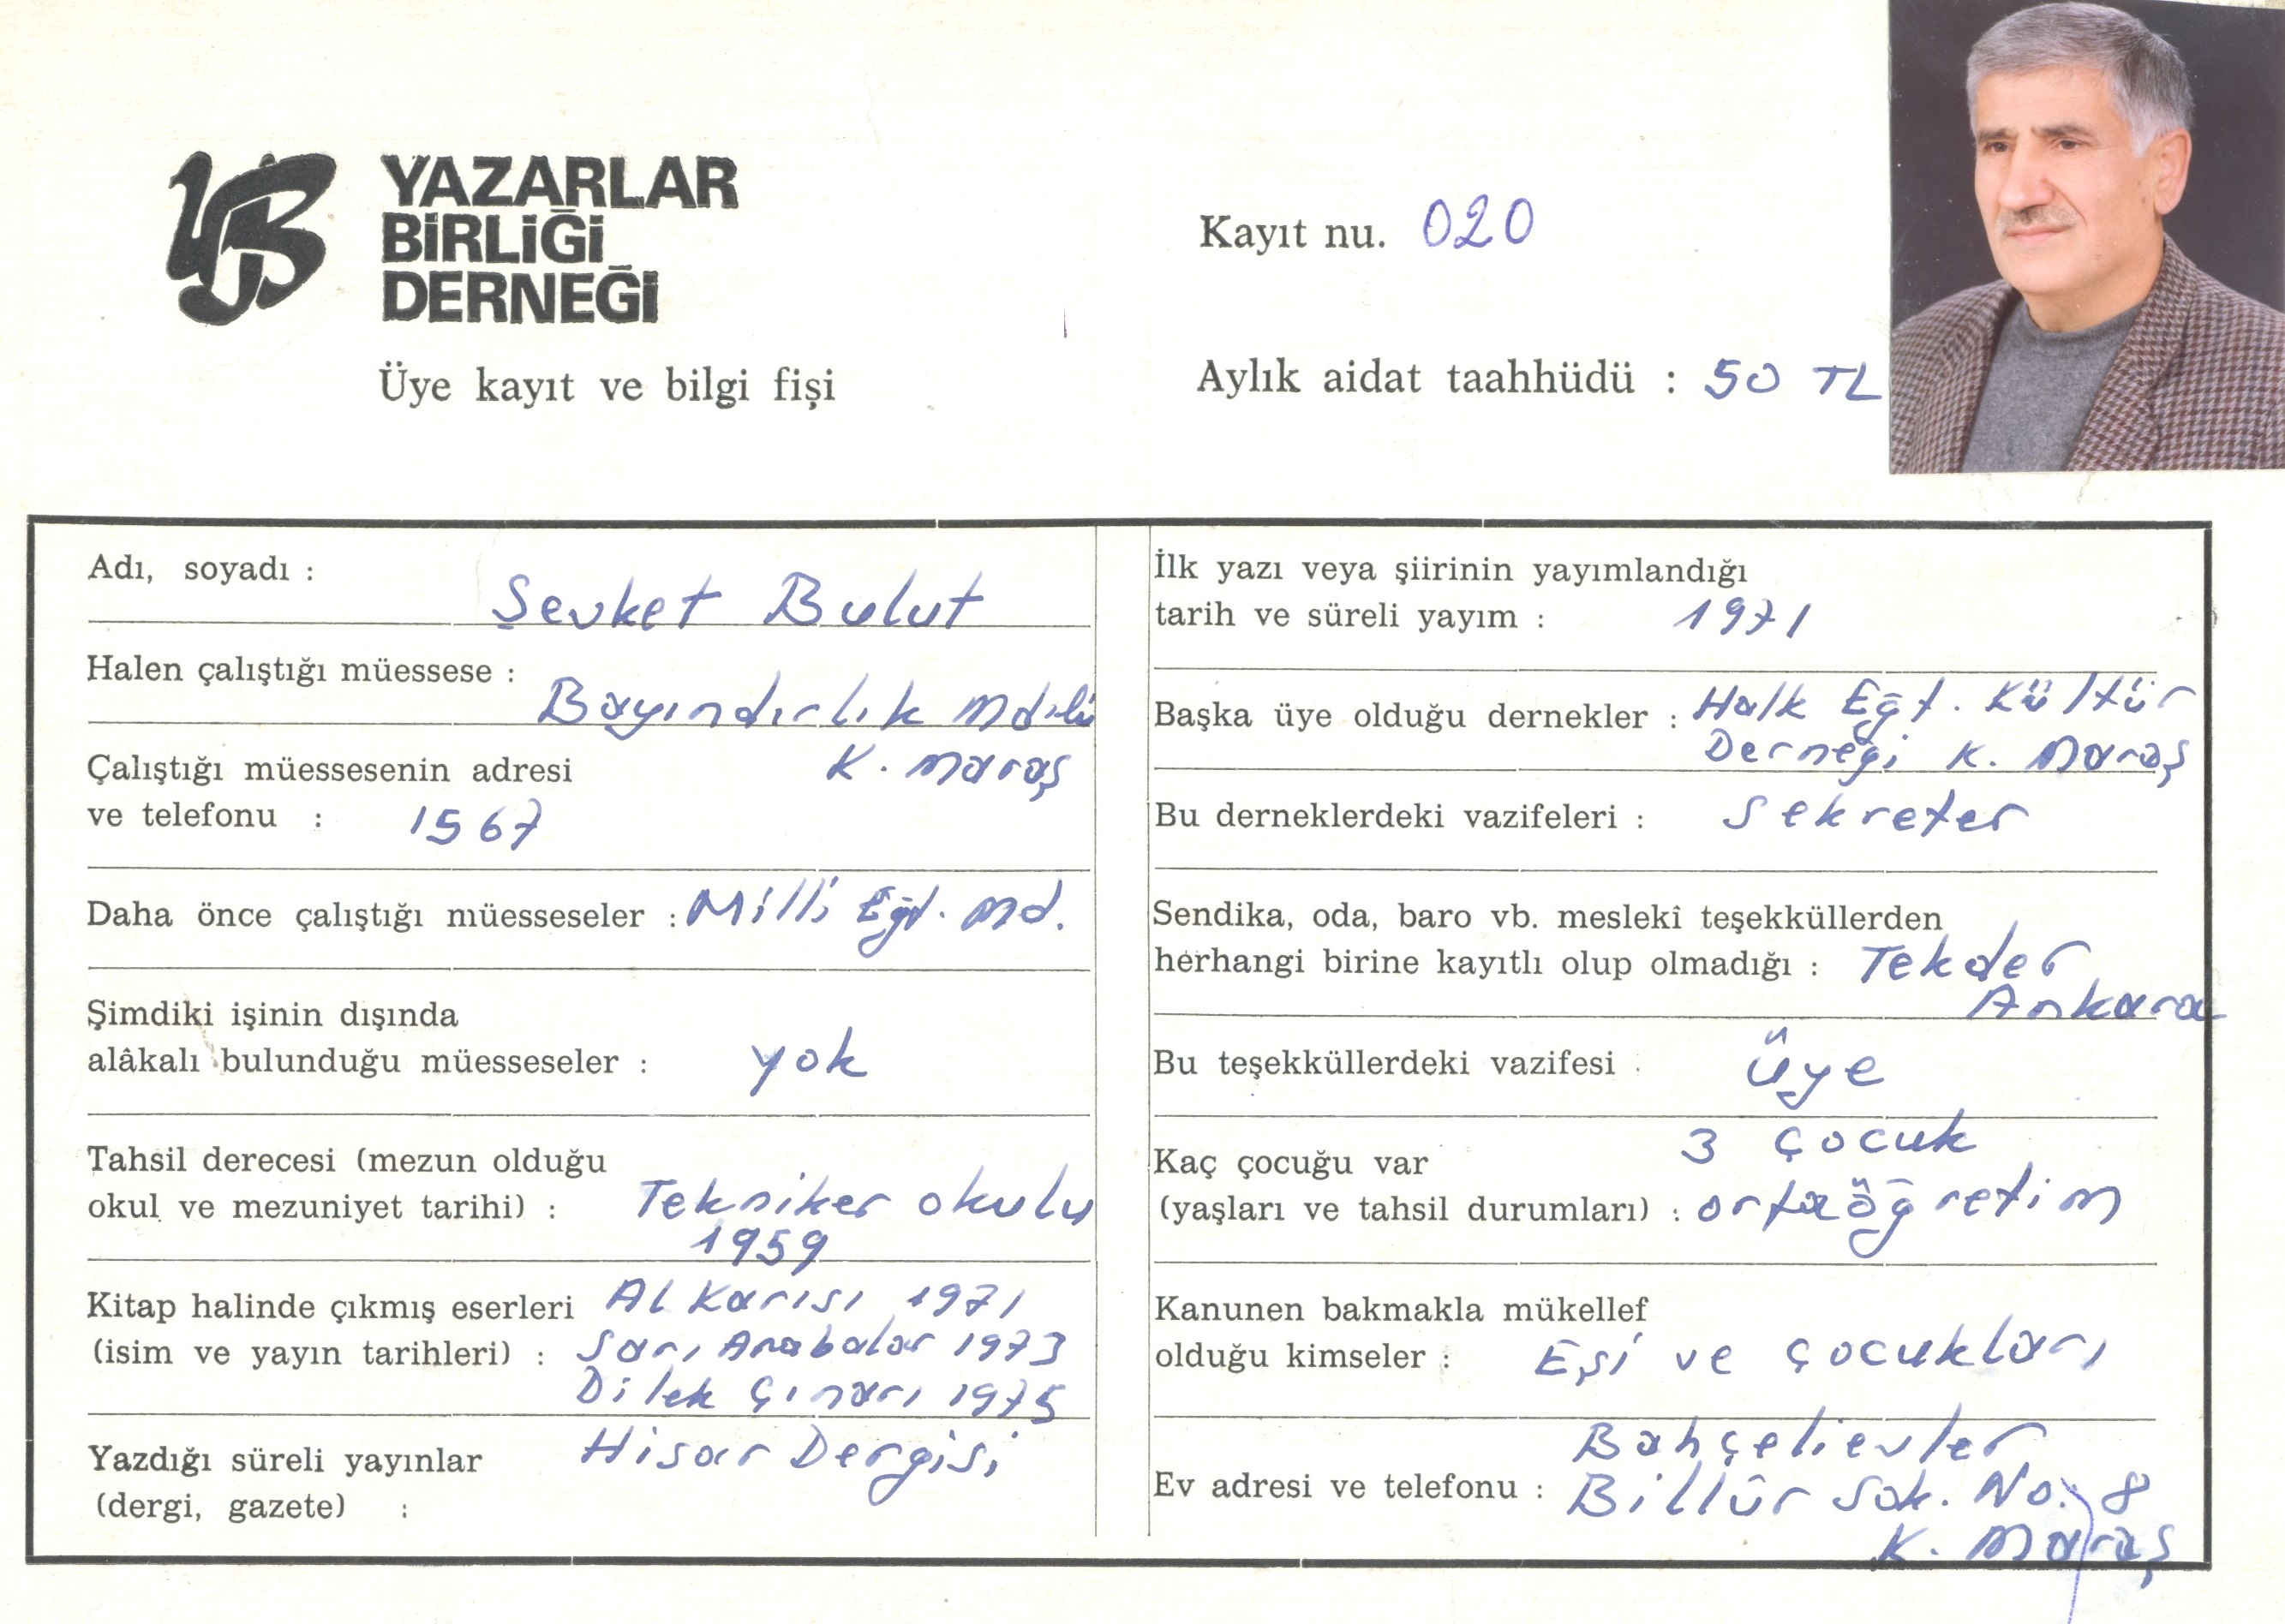 YAZARLAR
BİRLİĞİ
DERNEĞİ
Üye kayıt ve bilgi fişi
Kayıt nu. 020
Aylık aidat taahhüdü : 50 TL
Adı, soyadı :
Şevket Bulut
Halen çalıştığı müessese :
Bayındırlık Md.lü
K. Maraş
Çalıştığı müessesenin adresi
ve telefonu : 1567
Daha önce çalıştığı müesseseler : Milli Eğt. Md.
Şimdiki işinin dışında
alâkalı bulunduğu müesseseler : yok
Tahsil derecesi (mezun olduğu
okul ve mezuniyet tarihi) : Tekniker okulu
1959
Kitap halinde çıkmış eserleri Al Karısı 1971
(isim ve yayın tarihleri) : Sarı Arabalar 1973
Dilek Çınarı 1975
Yazdığı süreli yayınlar Hisar Dergisi
(dergi, gazete) :
İlk yazı veya şiirinin yayımlandığı
tarih ve süreli yayım : 1971
Başka üye olduğu dernekler : Halk Eğt. Kültür
Derneği K. Maraş
Bu derneklerdeki vazifeleri : Sekreter
Sendika, oda, baro vb. meslekî teşekküllerden
herhangi birine kayıtlı olup olmadığı : Tekder
Ankara
Bu teşekküllerdeki vazifesi : Üye
3 çocuk
Kaç çocuğu var
(yaşları ve tahsil durumları) : ortaöğretim
Kanunen bakmakla mükellef
olduğu kimseler : Eşi ve çocukları
Bahçelievler
Ev adresi ve telefonu : Billûr Sok. No: 8
K. Maraş